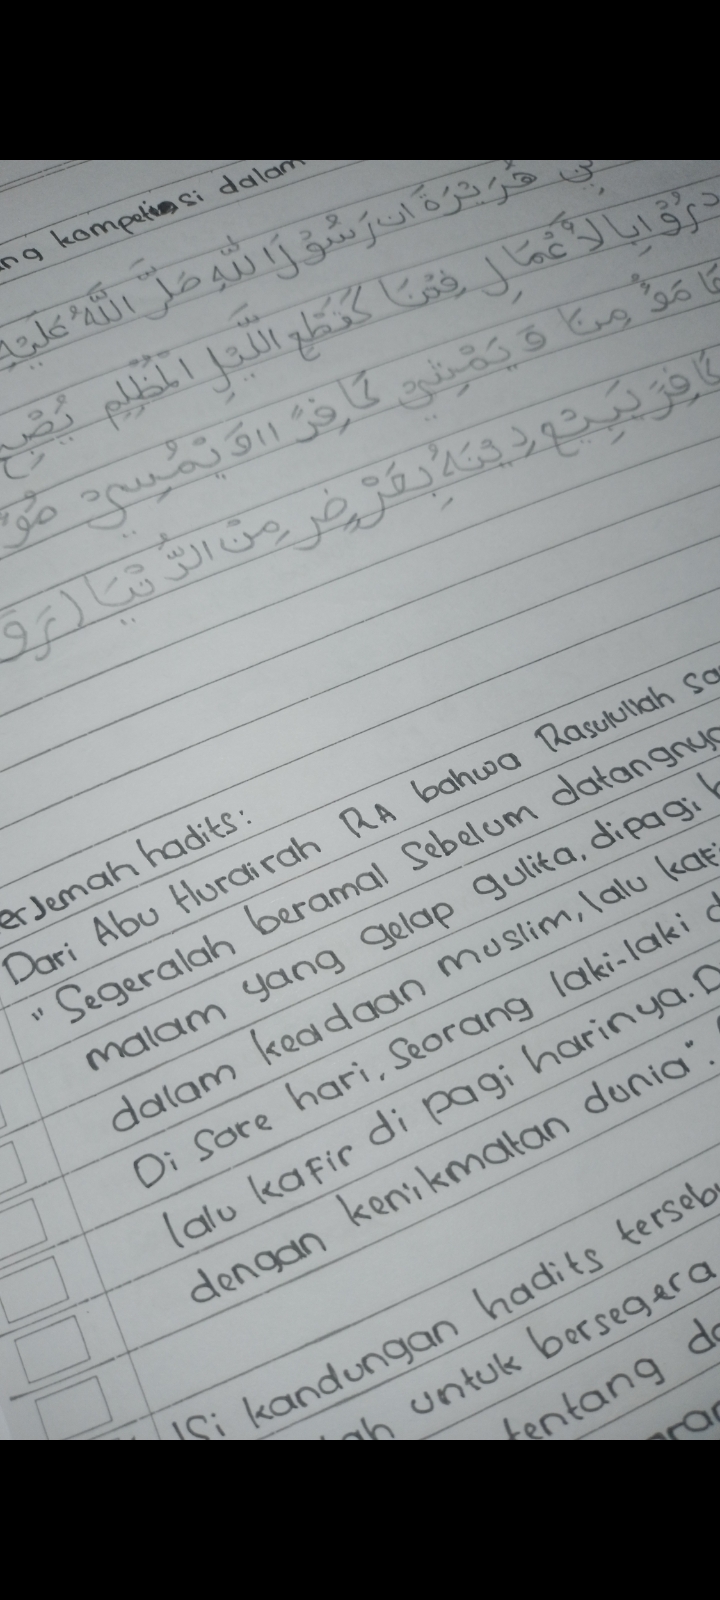 ng kompetensi dalam
بي هُرَيْرَةَ ان رَسُوْلَ اللهِ صَلَّ اللَّهُ عَلَيْهِ
درُوْا بالاَعْمَالِ فِتْنَا كَقَطْعِ اللَّيْلِ الْمُظْلِمِ يُصْبِحُ
مِنَا وَيَمْشِيْ كَافِرً ااوَيْمُسِيْ مُؤْ
كَافِرً يَبِيْع دِيْنَهُ بِعَرْضٍ مِنْ الدُّنْيَا (رَوَ
erjemah hadits:
Dari Abu Hurairah RA bahwa Rasulullah sa
"Segeralah beramal Sebelum datangnya
malam yang gelap gulita, dipagi h
dalam keadaan muslim, lalu kafi
Di sore hari, seorang laki-laki d
lalu kafir di pagi harinya. D
dengan kenikmatan dunia".
Isi kandungan hadits tersebu
ah untuk bersegera
tentang da